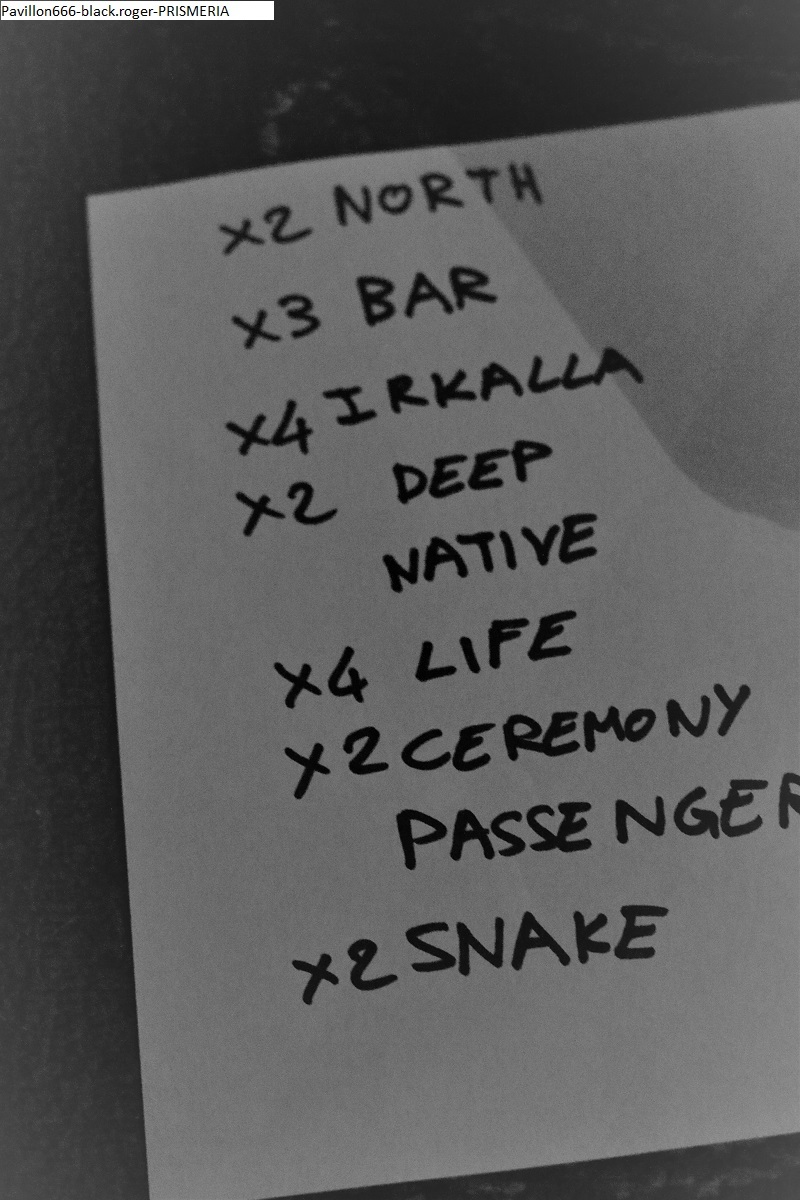 Pavillon666-black.roger-PRISMERIA
x2 NORTH
x3 BAR
x4 IRKALLA
x2 DEEP
NATIVE
x4 LIFE
x2 CEREMONY
PASSENGER
x2 SNAKE